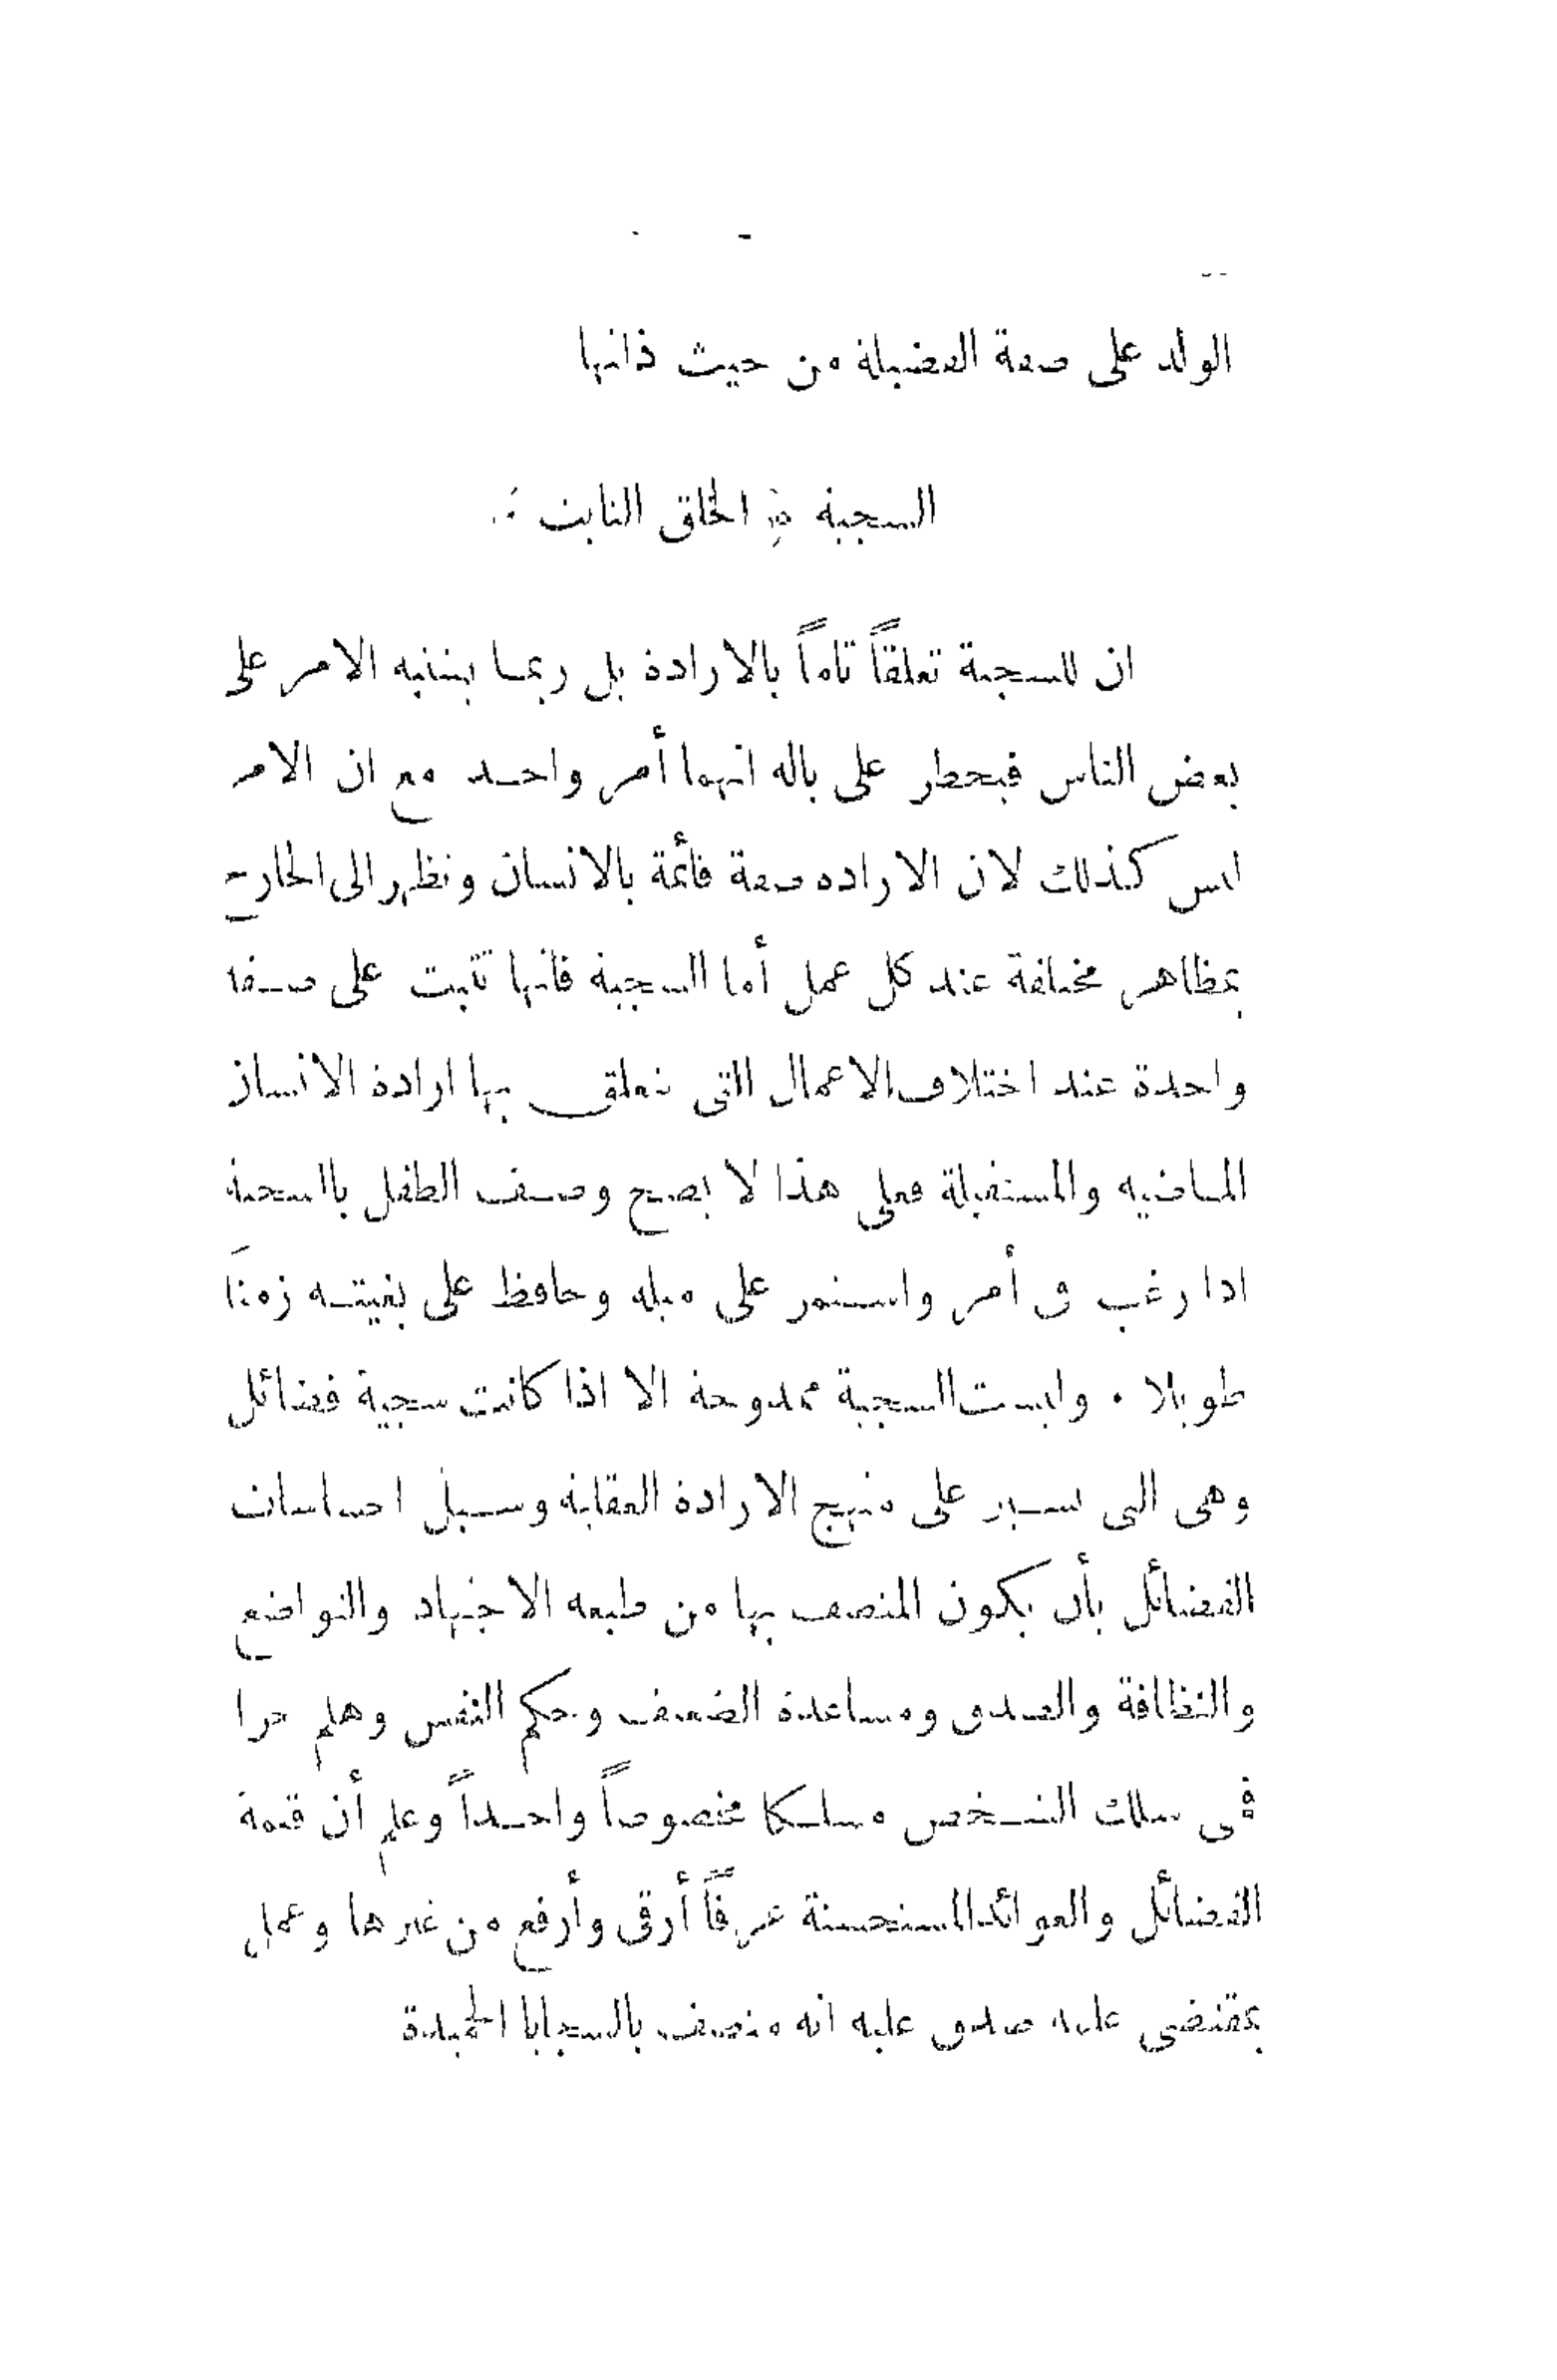 الولد على صفة الفضيلة من حيث ذاتها
السجية او الخلق الثابت
ان للسجية تعلقاً تاماً بالارادة بل ربما يشتبه الامر على
بعض الناس فيخطر على باله انهما أمر واحد مع ان الامر
ليس كذلك لان الارادة صفة قائمة بالانسان وتظهر الى الخارج
بمظاهر مختلفة عند كل عمل أما السجية فانها تثبت على صفة
واحدة عند اختلاف الاعمال التى تتعلق بها ارادة الانسان
الماضيه والمستقبلة فعلى هذا لا يصح وصف الطفل بالسجية
اذا رغب فى أمر واستمر على ميله وحافظ على بغيته زمناً
طويلا . وليست السجية ممدوحة الا اذا كانت سجية فضائل
وهى التى تسير على منهج الارادة العقلية وسبل احساسات
الفضائل بأن يكون المتصف بها من طبعه الاجتهاد والتواضع
والنظافة والصدق ومساعدة الضعيف وحكم النفس وهلم جرا
فمتى سلك الشخص مسلكا مخصوصاً واحداً وعلم أن قيمة
الفضائل والعوائد المستحسنة عرفاً أرقى وأرفع من غيرها وعمل
بمقتضى علمه صدق عليه انه متصف بالسجايا الحميدة